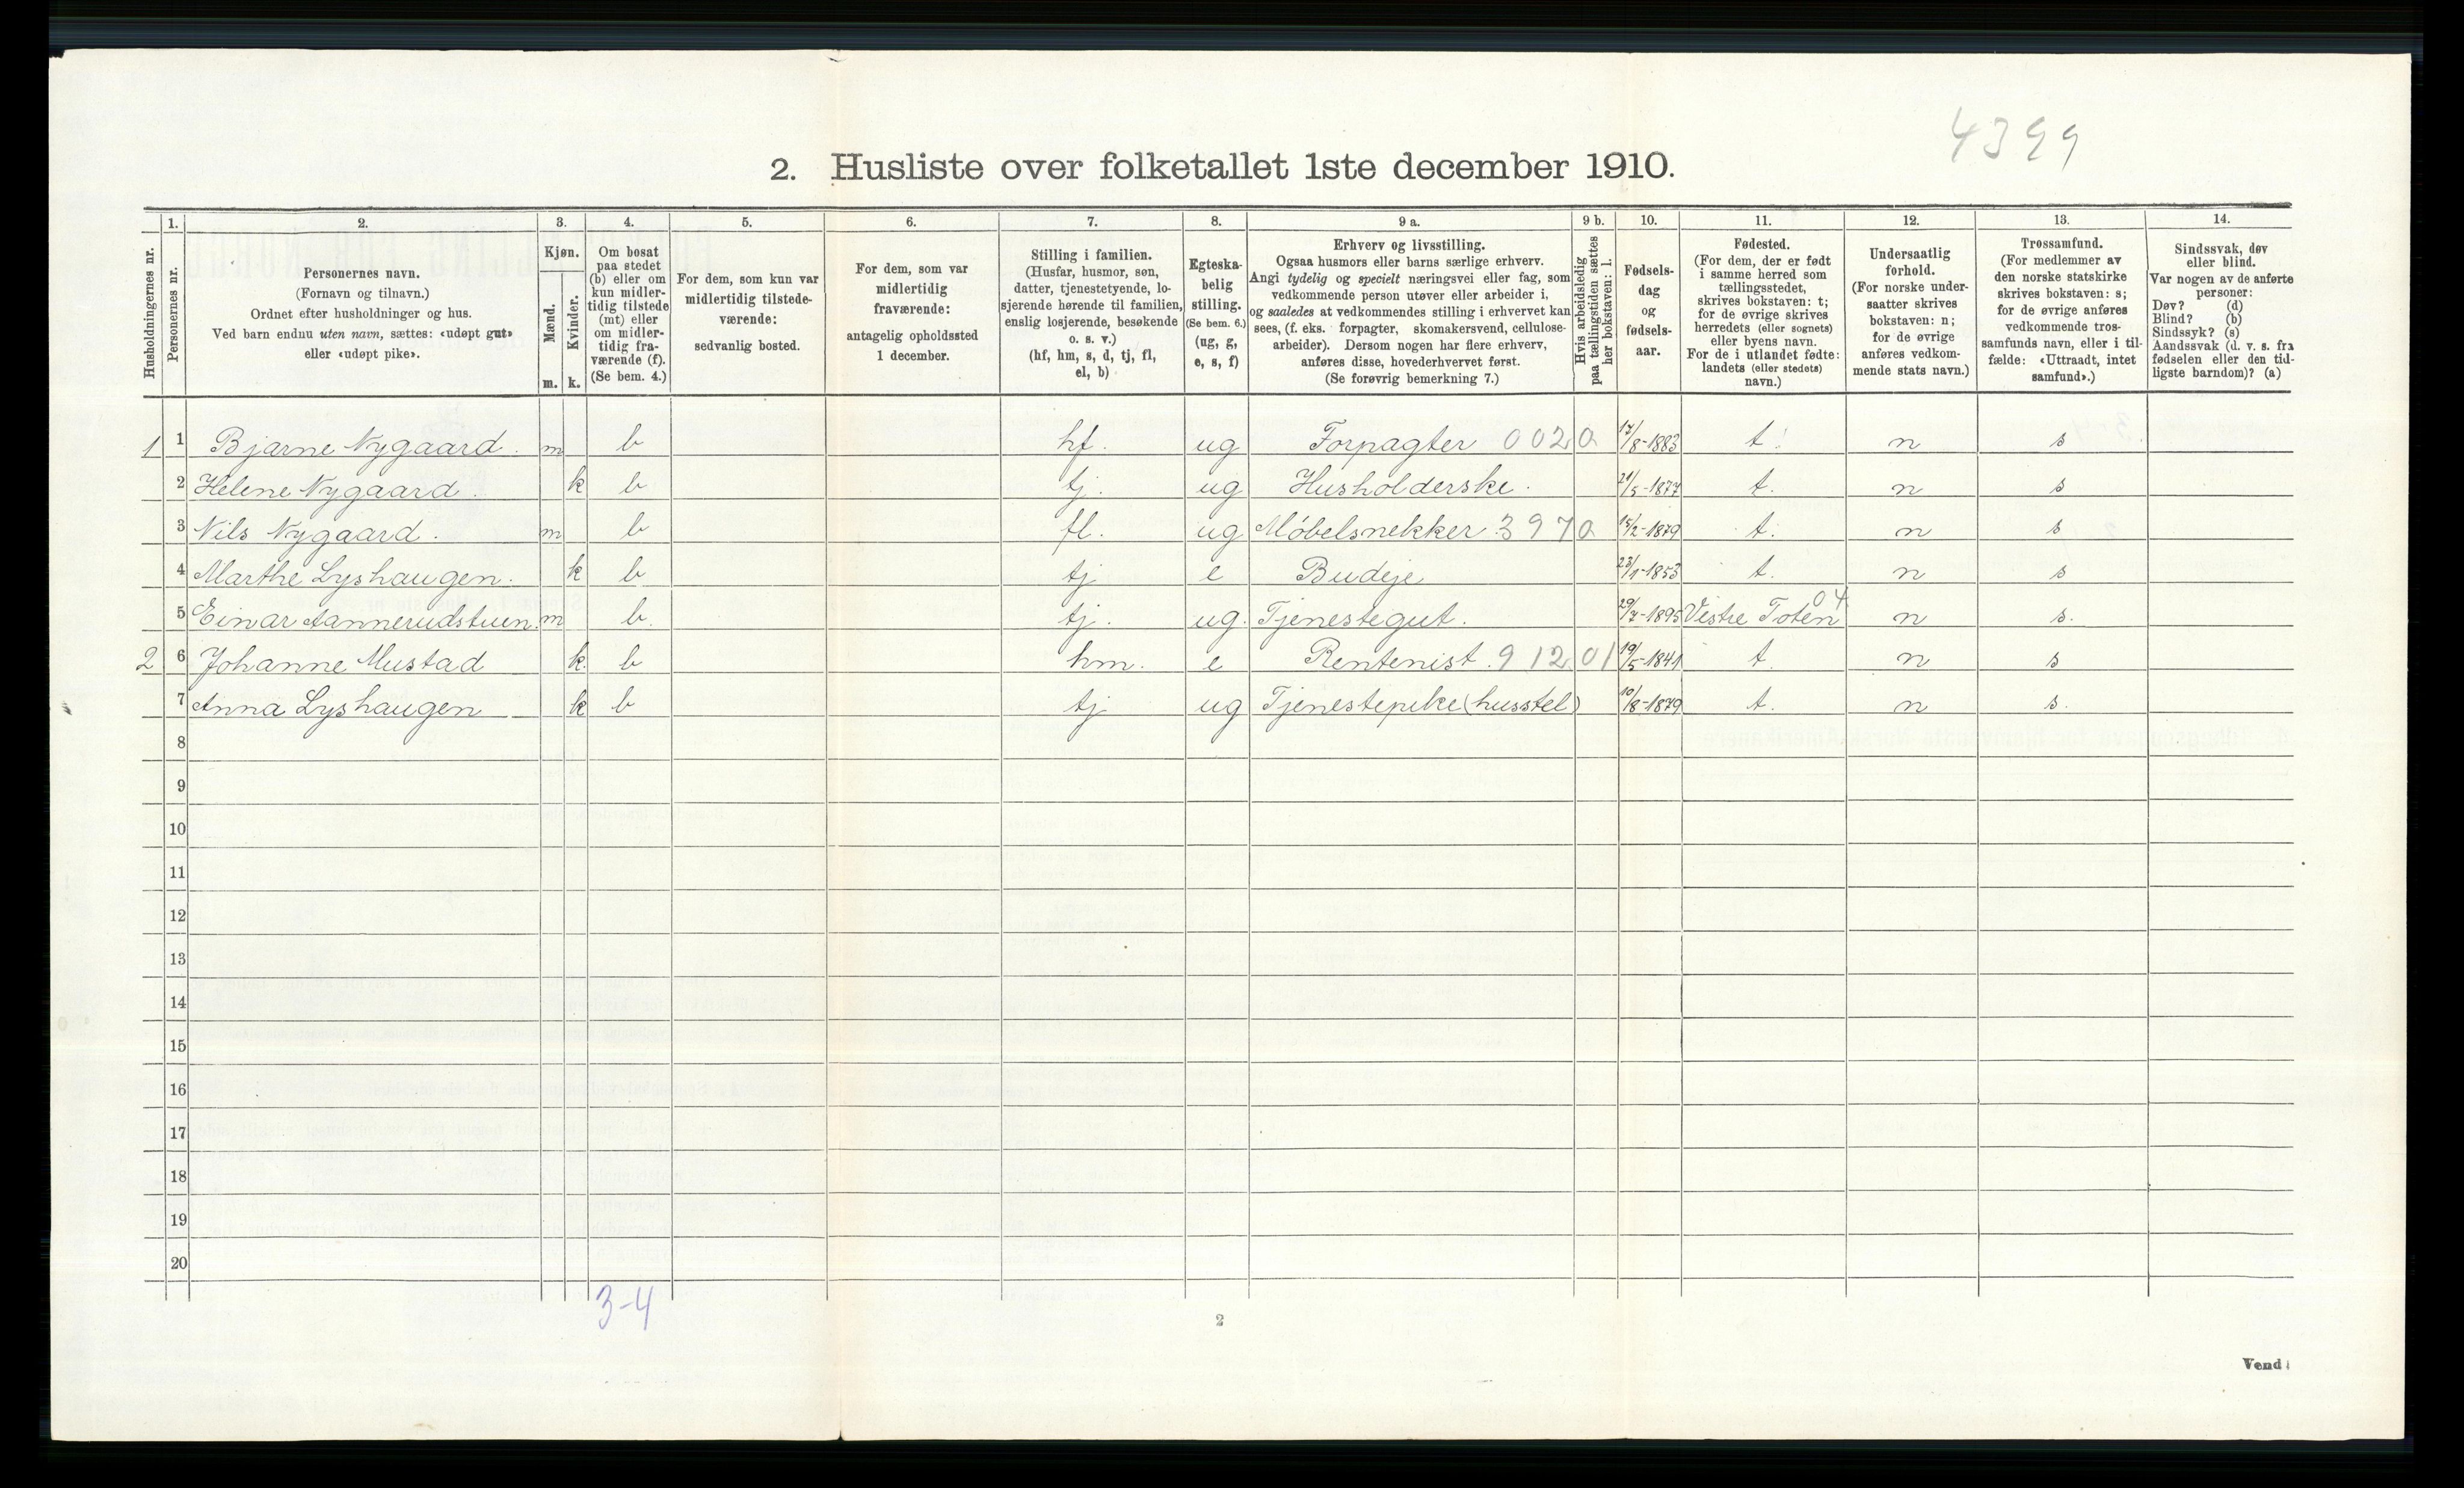 4399
2. Husliste over folketallet 1ste december 1910.
Husholdningernes nr.
1.
Personernes nr.
2.
Personernes navn.
(Fornavn og tilnavn.)
Ordnet efter husholdninger og hus.
Ved barn endnu uten navn, sættes: «udøpt gut»
eller «udøpt pike».
3.
Kjøn.
Mænd.
Kvinder.
m. k.
4.
Om bosat
paa stedet
(b) eller om
kun midler-
tidig tilstede
(mt) eller
om midler-
tidig fra-
værende (f).
(Se bem. 4.)
5.
For dem, som kun var
midlertidig tilstede-
værende:
sedvanlig bosted.
6.
For dem, som var
midlertidig
fraværende:
antagelig opholdssted
1 december.
7.
Stilling i familien.
(Husfar, husmor, søn,
datter, tjenestetyende, lo-
sjerende hørende til familien,
enslig losjerende, besøkende
o. s. v.)
(hf, hm, s, d, tj, fl,
el, b)
8.
Egteska-
belig
stilling.
(Se bem. 6.)
(ug, g,
e, s, f)
9 a.
Erhverv og livsstilling.
Ogsaa husmors eller barns særlige erhverv.
Angi tydelig og specielt næringsvei eller fag, som
vedkommende person utøver eller arbeider i,
og saaledes at vedkommendes stilling i erhvervet kan
sees, (f. eks. forpagter, skomakersvend, cellulose-
arbeider). Dersom nogen har flere erhverv,
anføres disse, hovederhvervet først.
(Se forøvrig bemerkning 7.)
9 b.
Hvis arbeidsledig
paa tællingstiden sættes
her bokstaven: l.
10.
Fødsels-
dag
og
fødsels-
aar.
11.
Fødested.
(For dem, der er født
i samme herred som
tællingsstedet,
skrives bokstaven: t;
for de øvrige skrives
herredets (eller sognets)
eller byens navn.
For de i utlandet fødte:
landets (eller stedets)
navn.)
12.
Undersaatlig
forhold.
(For norske under-
saatter skrives
bokstaven: n;
for de øvrige
anføres vedkom-
mende stats navn.)
13.
Trossamfund.
(For medlemmer av
den norske statskirke
skrives bokstaven: s;
for de øvrige anføres
vedkommende tros-
samfunds navn, eller i til-
fælde: «Uttraadt, intet
samfund».)
14.
Sindssvak, døv
eller blind.
Var nogen av de anførte
personer:
Døv? (d)
Blind? (b)
Sindssyk? (s)
Aandssvak (d. v. s. fra
fødselen eller den tid-
ligste barndom)? (a)
1 1 Bjarne Nygaard. m b hf. ug Forpagter 002 0 17/8-1883 t. n s
2 Helene Nygaard. k b tj. ug Husholderske. 21/5-1877 t. n s
3 Nils Nygaard. m b fl. ug Møbelsnekker 397 0 15/2-1879 t. n s
4 Marthe Lyshaugen. k b tj e Budeje 23/1-1853 t. n s
5 Einar Aannerudstuen. m b. tj. ug. Tjenestegut. 29/7-1895 Vestre Toten 04 n s.
2 6 Johanne Mustad k. b hm. e Rentenist. 912 01 19/5-1841 t. n s
7 Anna Lyshaugen k b tj ug Tjenestepike (husstel) 10/8-1879 t. n s.
8
9
10
11
12
13
14
15
16
17
18
19
20
3-4
2
Vend!